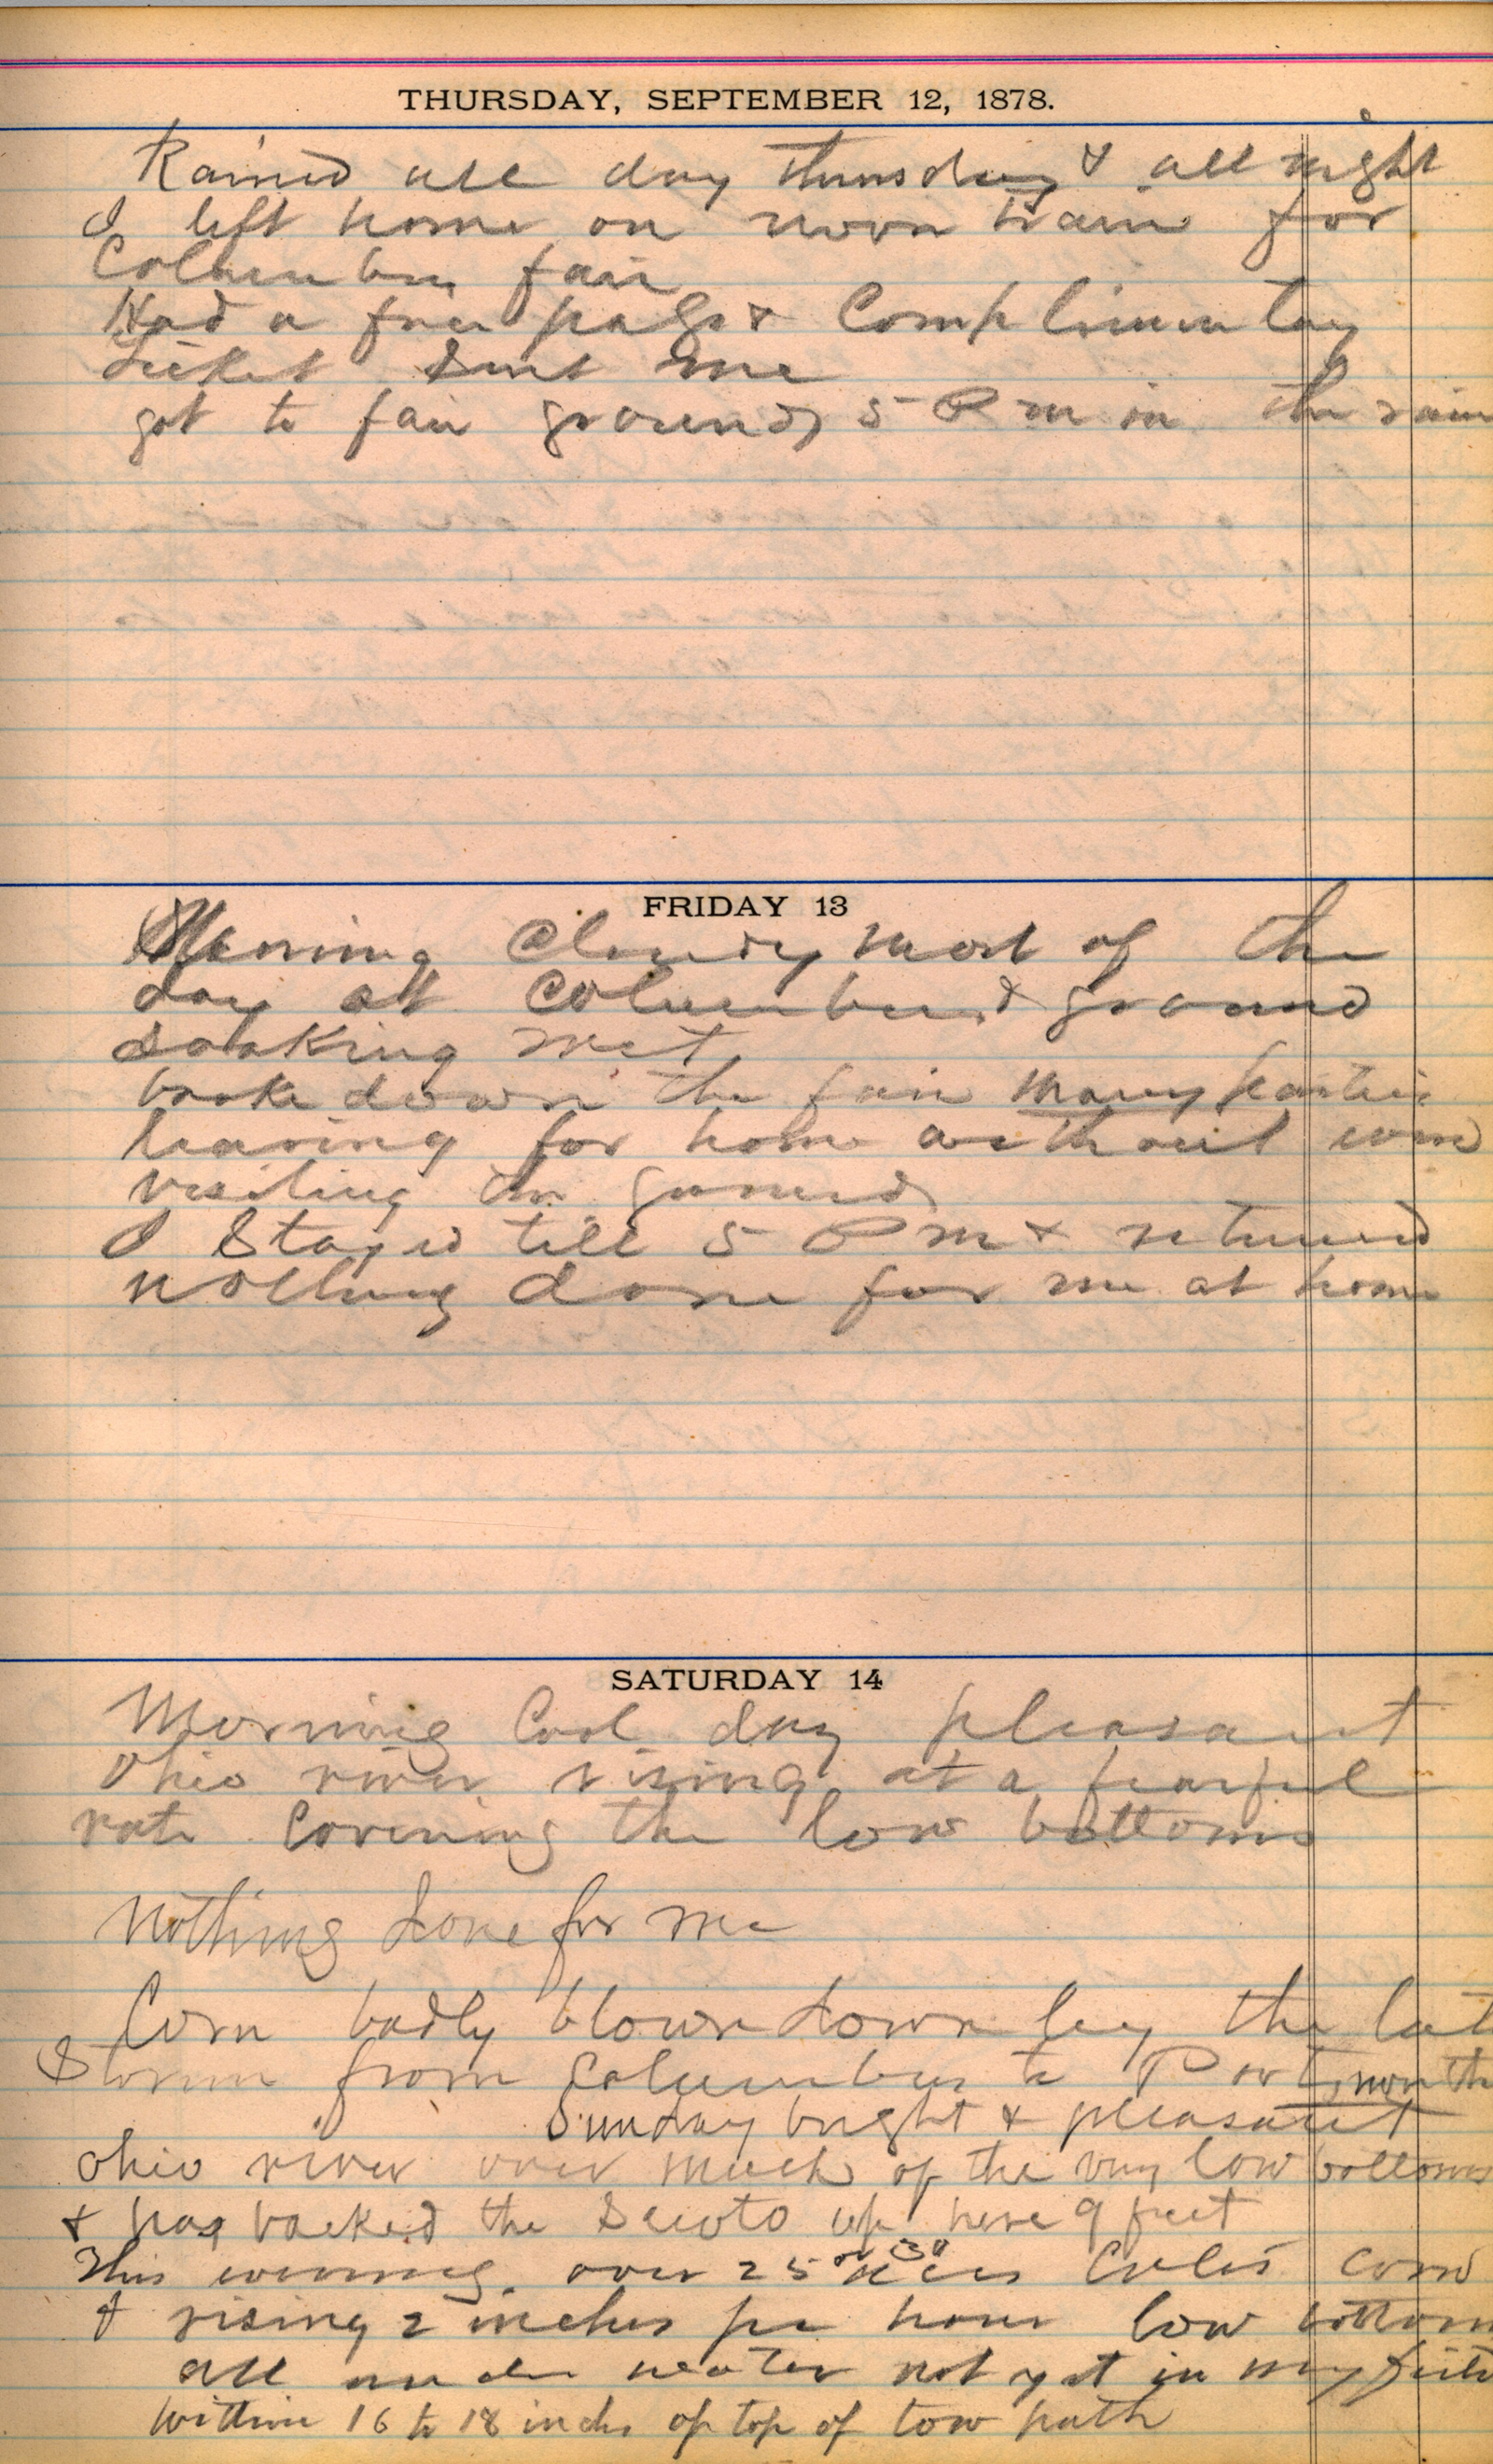 THURSDAY, SEPTEMBER 12, 1878.
Rained all day thursday & all night
I left home on noon train for
Columbus fair
Had a free pass & Complimentary
ticket sent me
got to fair grounds 5 P m in the rain
FRIDAY 13
Morning Cloudy most of the
day at Columbus & ground
soaking wet
broke down the fair many parties
leaving for home without even
visiting the grounds
I Stayed till 5 P m & returned
nothing done for me at home
SATURDAY 14
Morning Cool day pleasant
Ohio river rising at a fearful
rate Covering the low bottoms
Nothing done for me
Corn badly blown down by the late
Storm from Columbus to Portsmouth
Sunday bright & pleasant
Ohio river over much of the very low bottoms
& has backed the Scioto up here 9 feet
This evening over 25 or 30 acres Coles corn
& rising 2 inches per hour low bottom
all under water not yet in my field
Within 16 to 18 inches of top of tow path